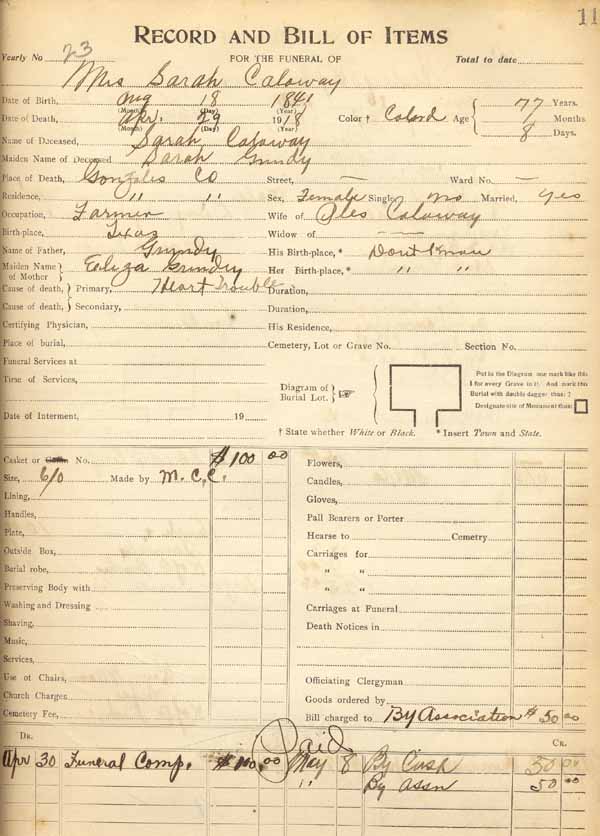 11
RECORD AND BILL OF ITEMS
Yearly No 23 FOR THE FUNERAL OF Total to date
Mrs Sarah Caloway
Date of Birth, Aug 18 1841
(Month) (Day) (Year)
Date of Death, Apr. 29 1918 Color † Colord Age 77 Years.
(Month) (Day) (Year) Months
8 Days.
Name of Deceased, Sarah Caloway
Maiden Name of Deceased Sarah Grundy
Place of Death, Gonzales Co Street, — Ward No. —
Residence, " " Sex, Female Single, no Married, yes
Occupation, Farmer Wife of Ples Caloway
Birth-place, Texas Widow of — —
Name of Father, Grundy His Birth-place,* Don't Know
Maiden Name of Mother Eliza Grundy Her Birth-place,* " "
Cause of death, Primary, Heart Trouble Duration,
Cause of death, Secondary, Duration,
Certifying Physician, His Residence,
Place of burial, Cemetery, Lot or Grave No. Section No.
Funeral Services at
Time of Services,
Diagram of Burial Lot.
Put in the Diagram one mark like this
I for every Grave in it. And mark this
Burial with double dagger thus: ‡
Designate site of Monument thus:
Date of Interment, 19
† State whether White or Black. * Insert Town and State.
Casket or Coffin No. $100 00 Flowers,
Size, 6/0 Made by M. C. C. Candles,
Lining, Gloves,
Handles, Pall Bearers or Porter
Plate, Hearse to Cemetry
Outside Box, Carriages for
Burial robe, " "
Preserving Body with " "
Washing and Dressing Carriages at Funeral
Shaving, Death Notices in
Music,
Services,
Use of Chairs, Officiating Clergyman
Church Charges, Goods ordered by
Cemetery Fee, Bill charged to By Association $ 50 00
DR. Paid CR.
Apr 30 Funeral Comp. $100.00 May 8 By Cash 50 00
" By Assn 50 00